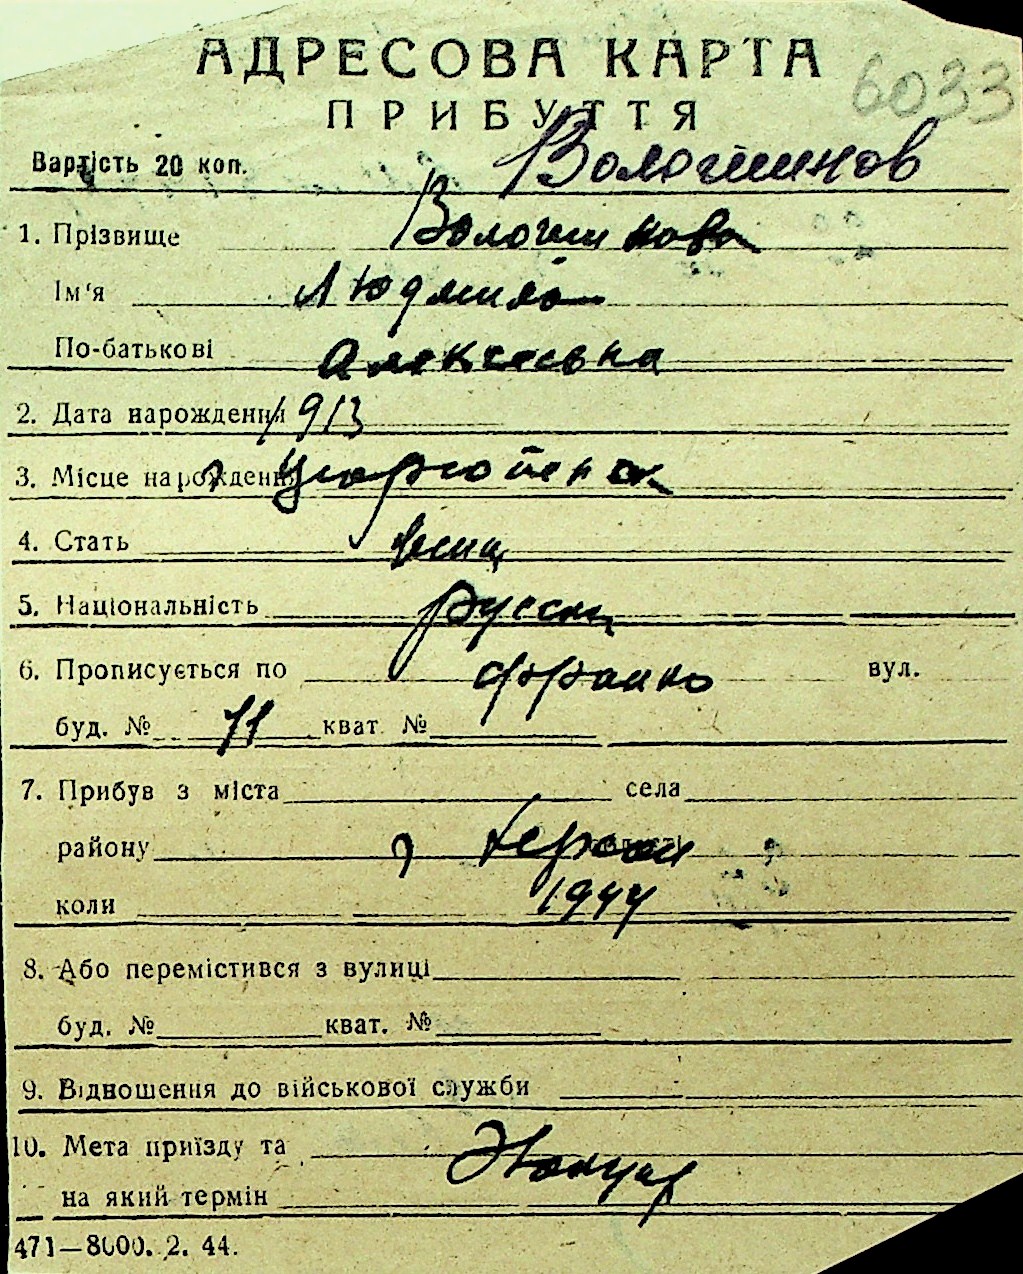 АДРЕСОВА КАРТА
6033
ПРИБУТТЯ
Вартість 20 коп. Вологшинов
1. Прізвище Вологшинова
Ім'я Людмила
По-батькові Алексеевна
2. Дата народження 1913
3. Місце народження
4. Стать женщ
5. Національність русск
6. Прописується по Франко вул.
буд. № 11 кват. №
7. Прибув з міста села
району г Херсон
коли 1944
8. Або перемістився з вулиці
буд. № кват. №
9. Відношення до військової служби
10. Мета приїзду та
на який термін Эвакуир
471—8000. 2. 44.